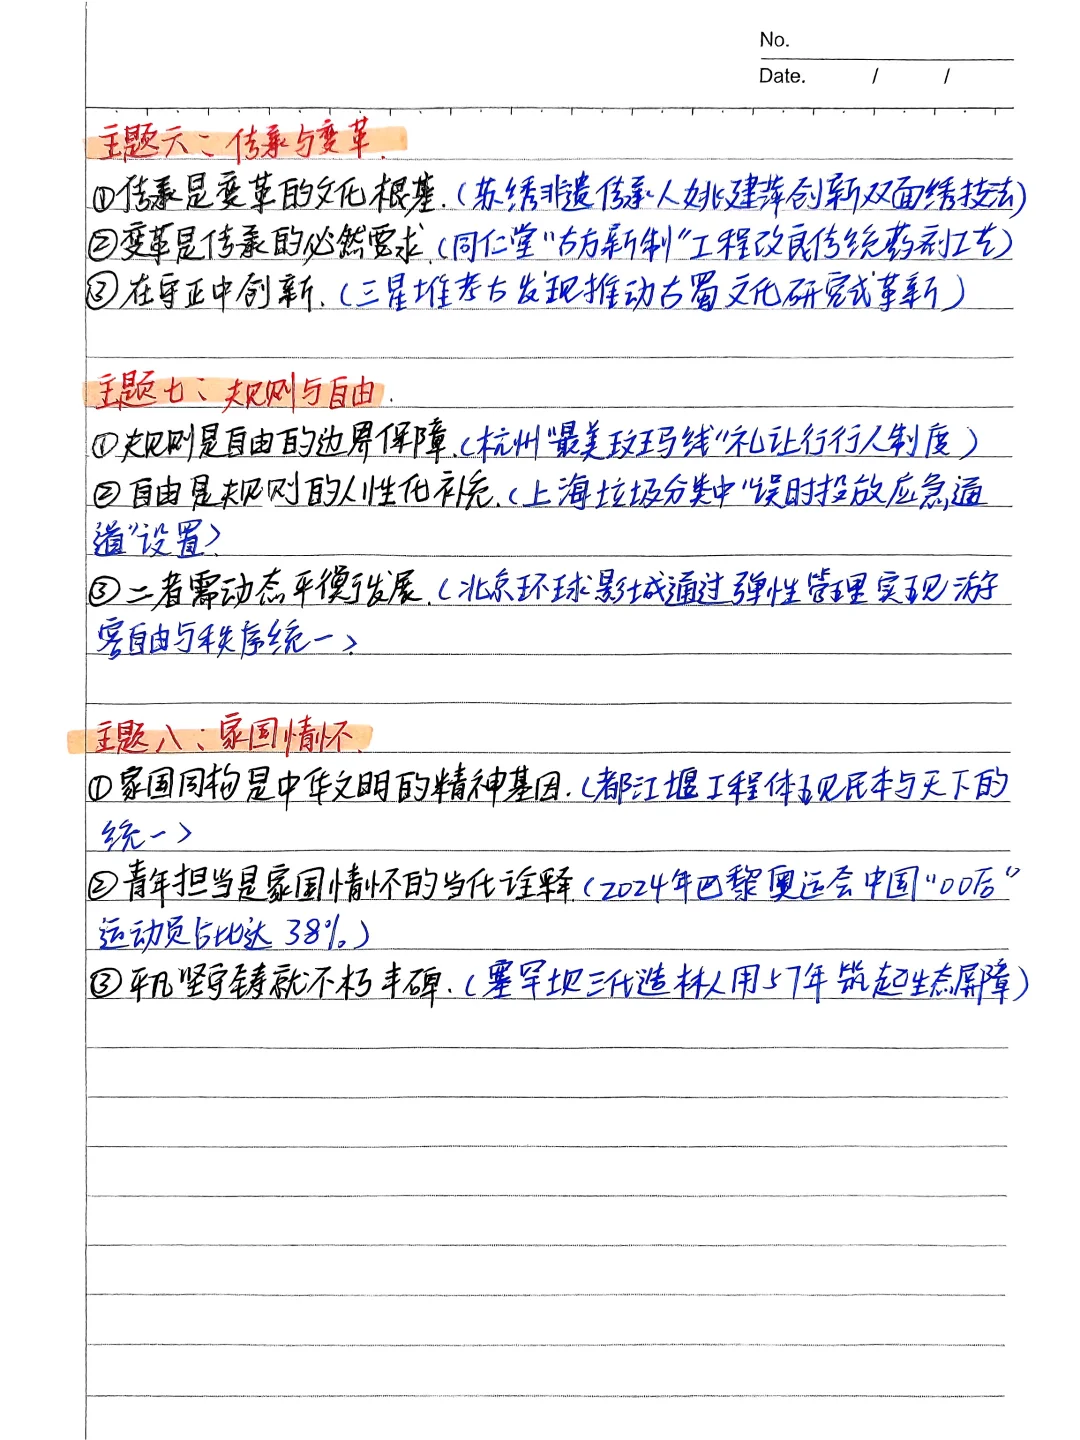 No.
Date. / /
主题六：传承与变革.
①传承是变革的文化根基.(苏绣非遗传承人姚建萍创新双面绣技法)
②变革是传承的必然要求.(同仁堂"古方新制"工程改良传统药剂工艺)
③在守正中创新.(三星堆考古发现推动古蜀文化研究式革新)
主题七：规则与自由.
①规则是自由的边界保障.(杭州"最美斑马线"礼让行行人制度)
②自由是规则的人性化补充.(上海垃圾分类中"误时投放应急通
道"设置)
③二者需动态平衡发展.(北京环球影城通过弹性管理实现游
客自由与秩序统一)
主题八：家国情怀.
①家国同构是中华文明的精神基因.(都江堰工程体现民本与天下的
统一)
②青年担当是家国情怀的当代诠释.(2024年巴黎奥运会中国"00后"
运动员占比达38%.)
③平凡坚守铸就不朽丰碑.(塞罕坝三代造林人用57年筑起生态屏障)